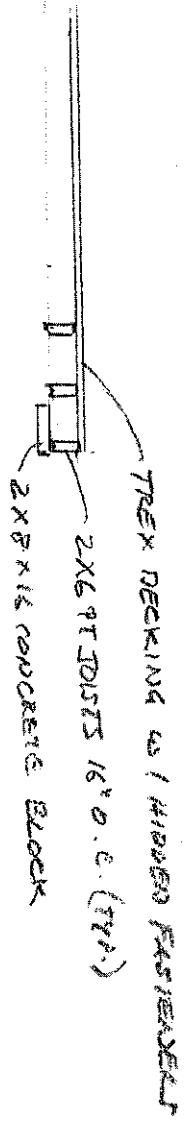 TREX DECKING W/ HIDDEN FASTENERS
2X6 PT JOISTS 16" O.C. (TYP.)
2X8X16 CONCRETE BLOCK